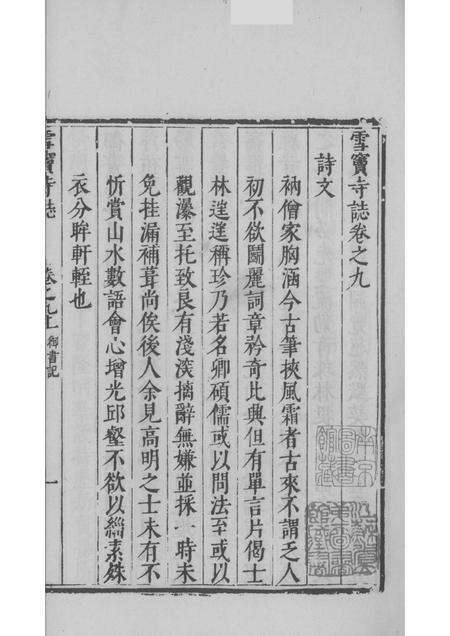 雪竇寺誌卷之九
詩文
衲僧家胸涵今古筆挾風霜者古來不謂之人
初不欲鬬麗詞章矜奇比典但有單言片偈士
林遑遑稱珍乃若名卿碩儒或以問法至或以
觀瀑至托致良有淺深摛辭無嫌並採一時未
免挂漏補葺尚俟後人余見高明之士未有不
忻賞山水數語會心增光邱壑不欲以緇素姝
衣分眸軒輊也
雪竇寺誌
卷之九上
御書記
一